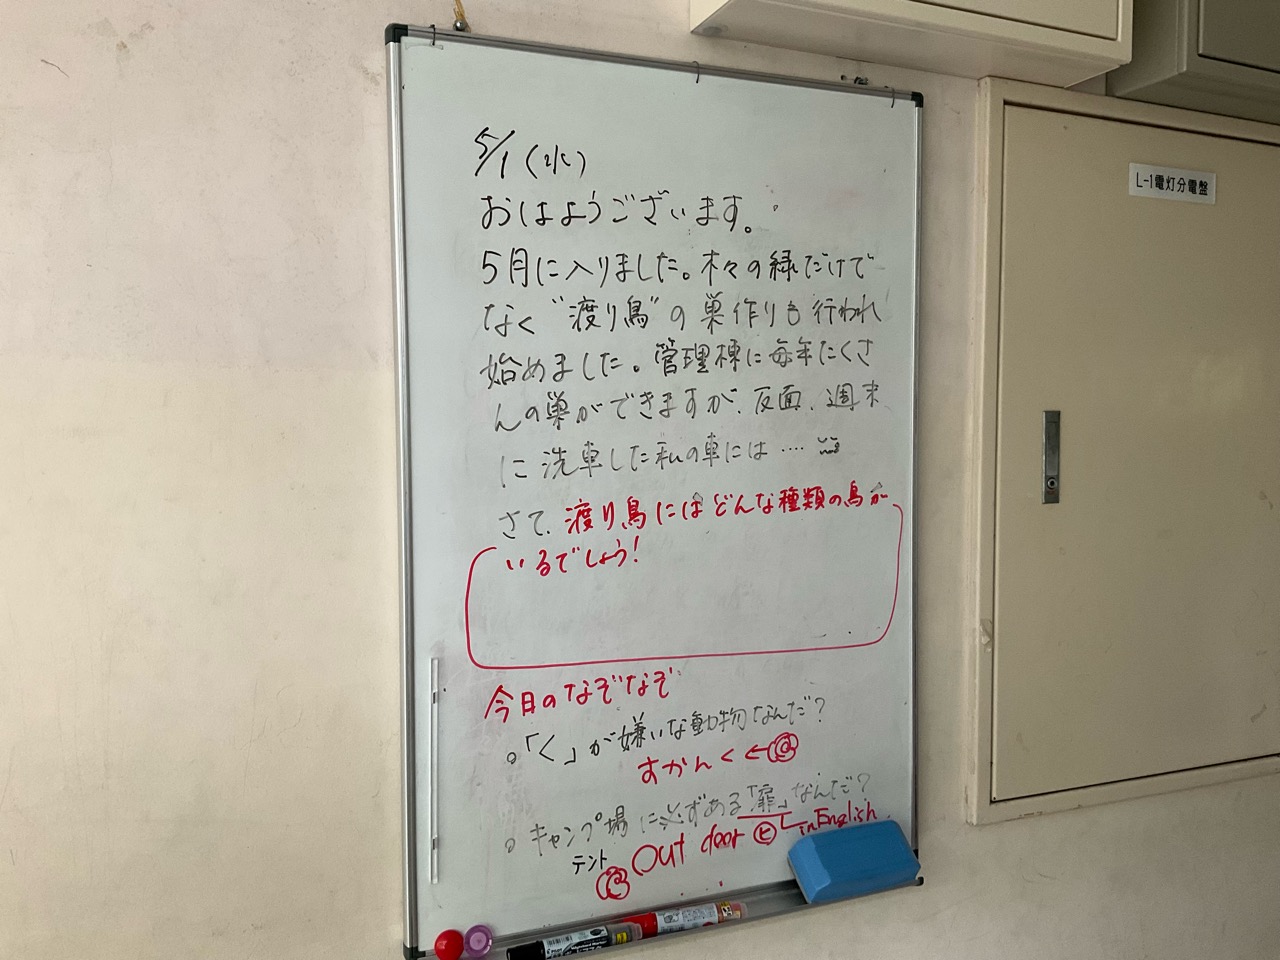 5/1(水)
おはようございます。
5月に入りました。木々の緑だけで
なく"渡り鳥"の巣作りも行われ
始めました。管理棟に毎年たくさ
んの巣ができますが、反面、週末
に洗車した私の車には‥‥
さて、渡り鳥にはどんな種類の鳥が
いるでしょう!
今日のなぞなぞ
○「く」が嫌いな動物なんだ?
すかんく←
○キャンプ場に必ずある「扉」なんだ?
in English
テント
Out door ヒ
L-1電灯分電盤